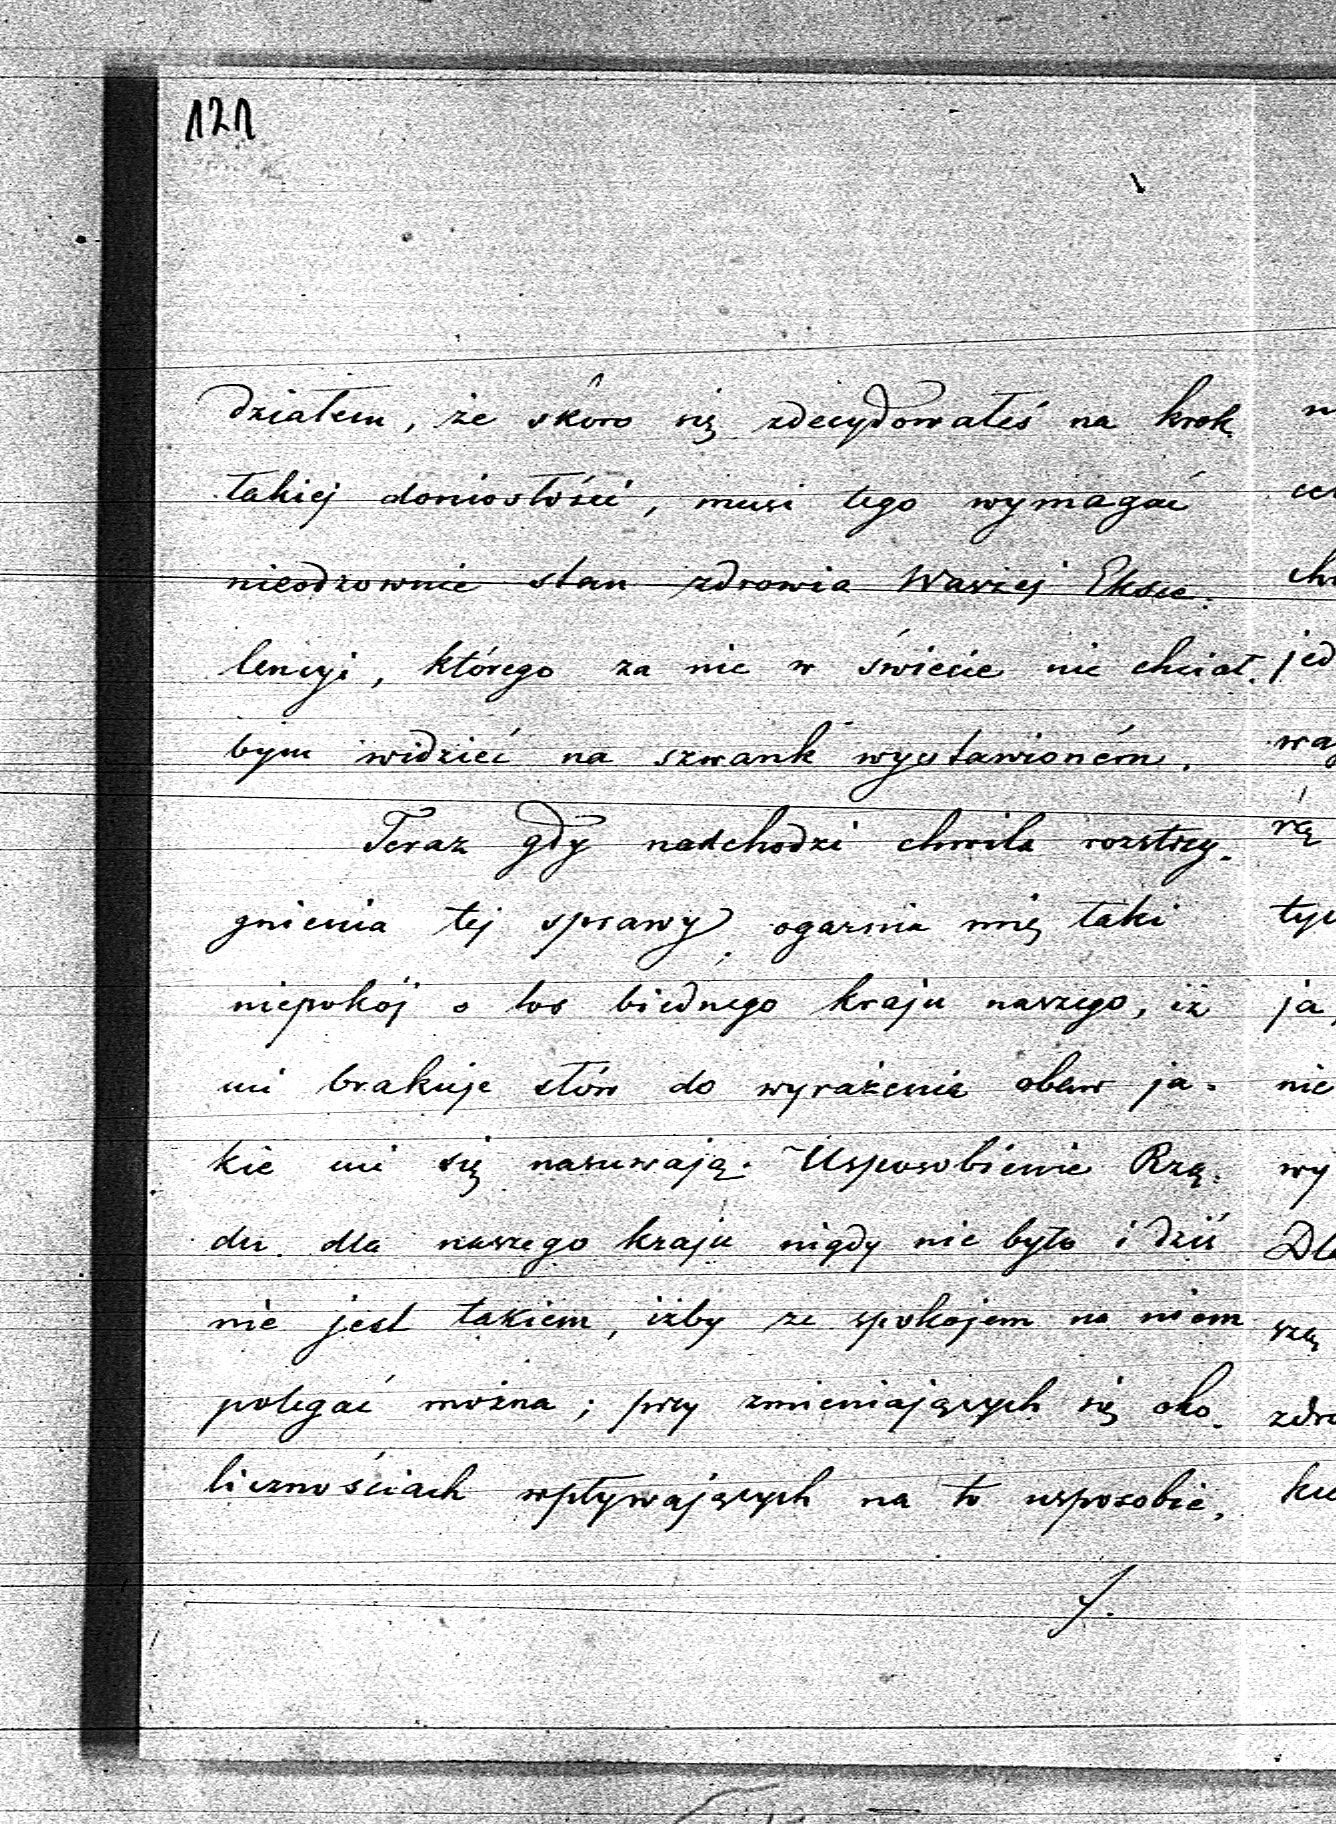 121
działem, że skoro się zdecydowałeś na krok
takiej doniosłości, musi tego wymagać
nieodzownie stan zdrowia Waszej Eksce-
lencyi, którego za nic w świecie nie chciał-
bym widzieć na szwank wystawioném.
Teraz gdy nadchodzi chwila rozstrzy-
gnienia tej sprawy, ogarnia mię taki
niepokój o los biednego kraju naszego, iż
mi brakuje słów do wyrażenia obaw ja-
kie mi się nasuwają. Usposobienie Rzą-
du dla naszego kraju nigdy nie było i dziś
nie jest takiem, iżby ze spokojem na niem
polegać można; przy zmieniających się oko-
licznościach wpływających na to usposobie-